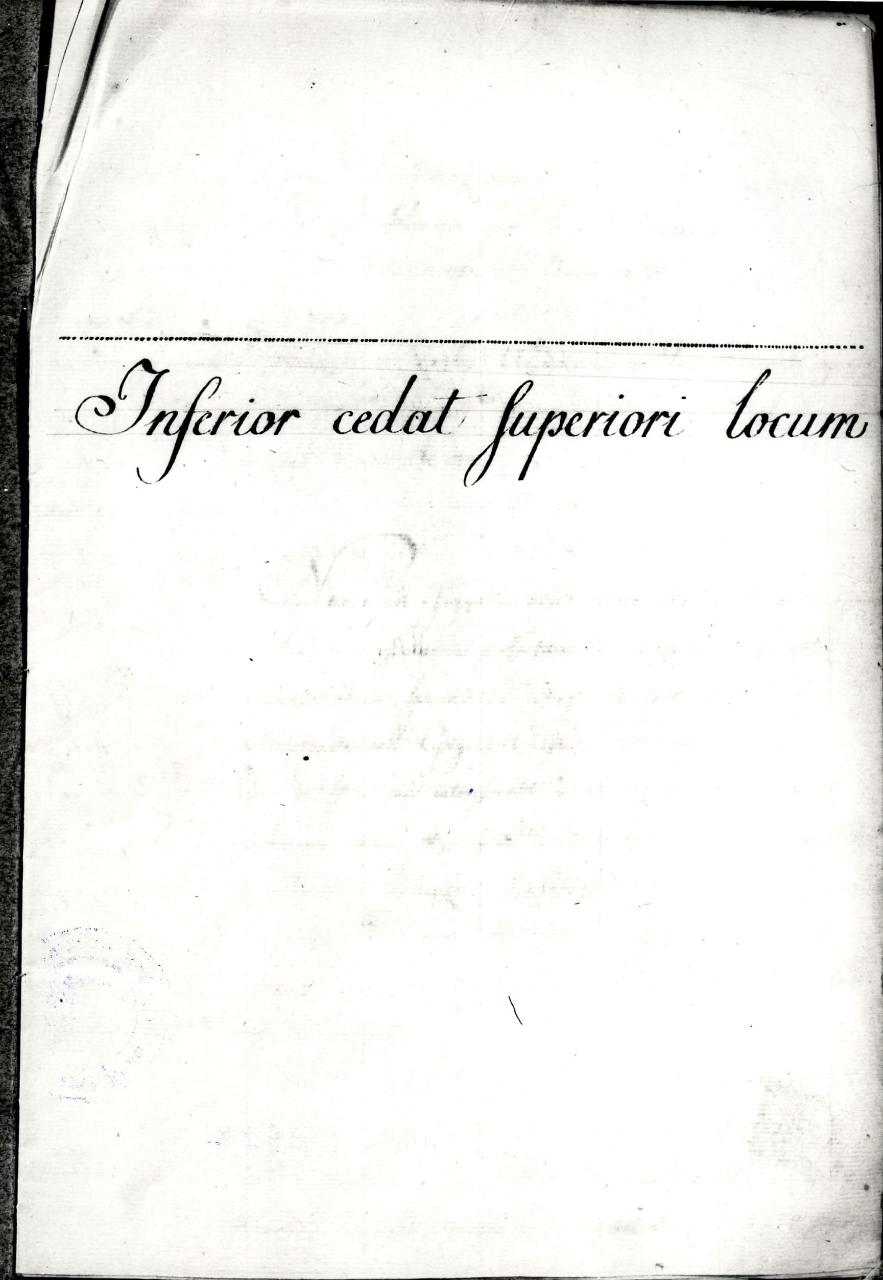 Inferior cedat superiori locum